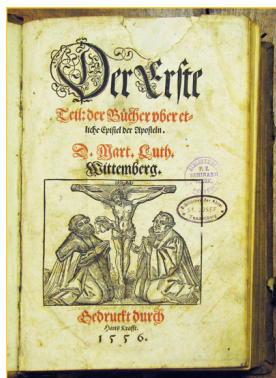 Der Erste
Teil: der Bücher vber et-
liche Epistel der Aposteln.
D. Mart. Luth.
Wittemberg.
Gedruckt durch
Hans Krafft.
1556.